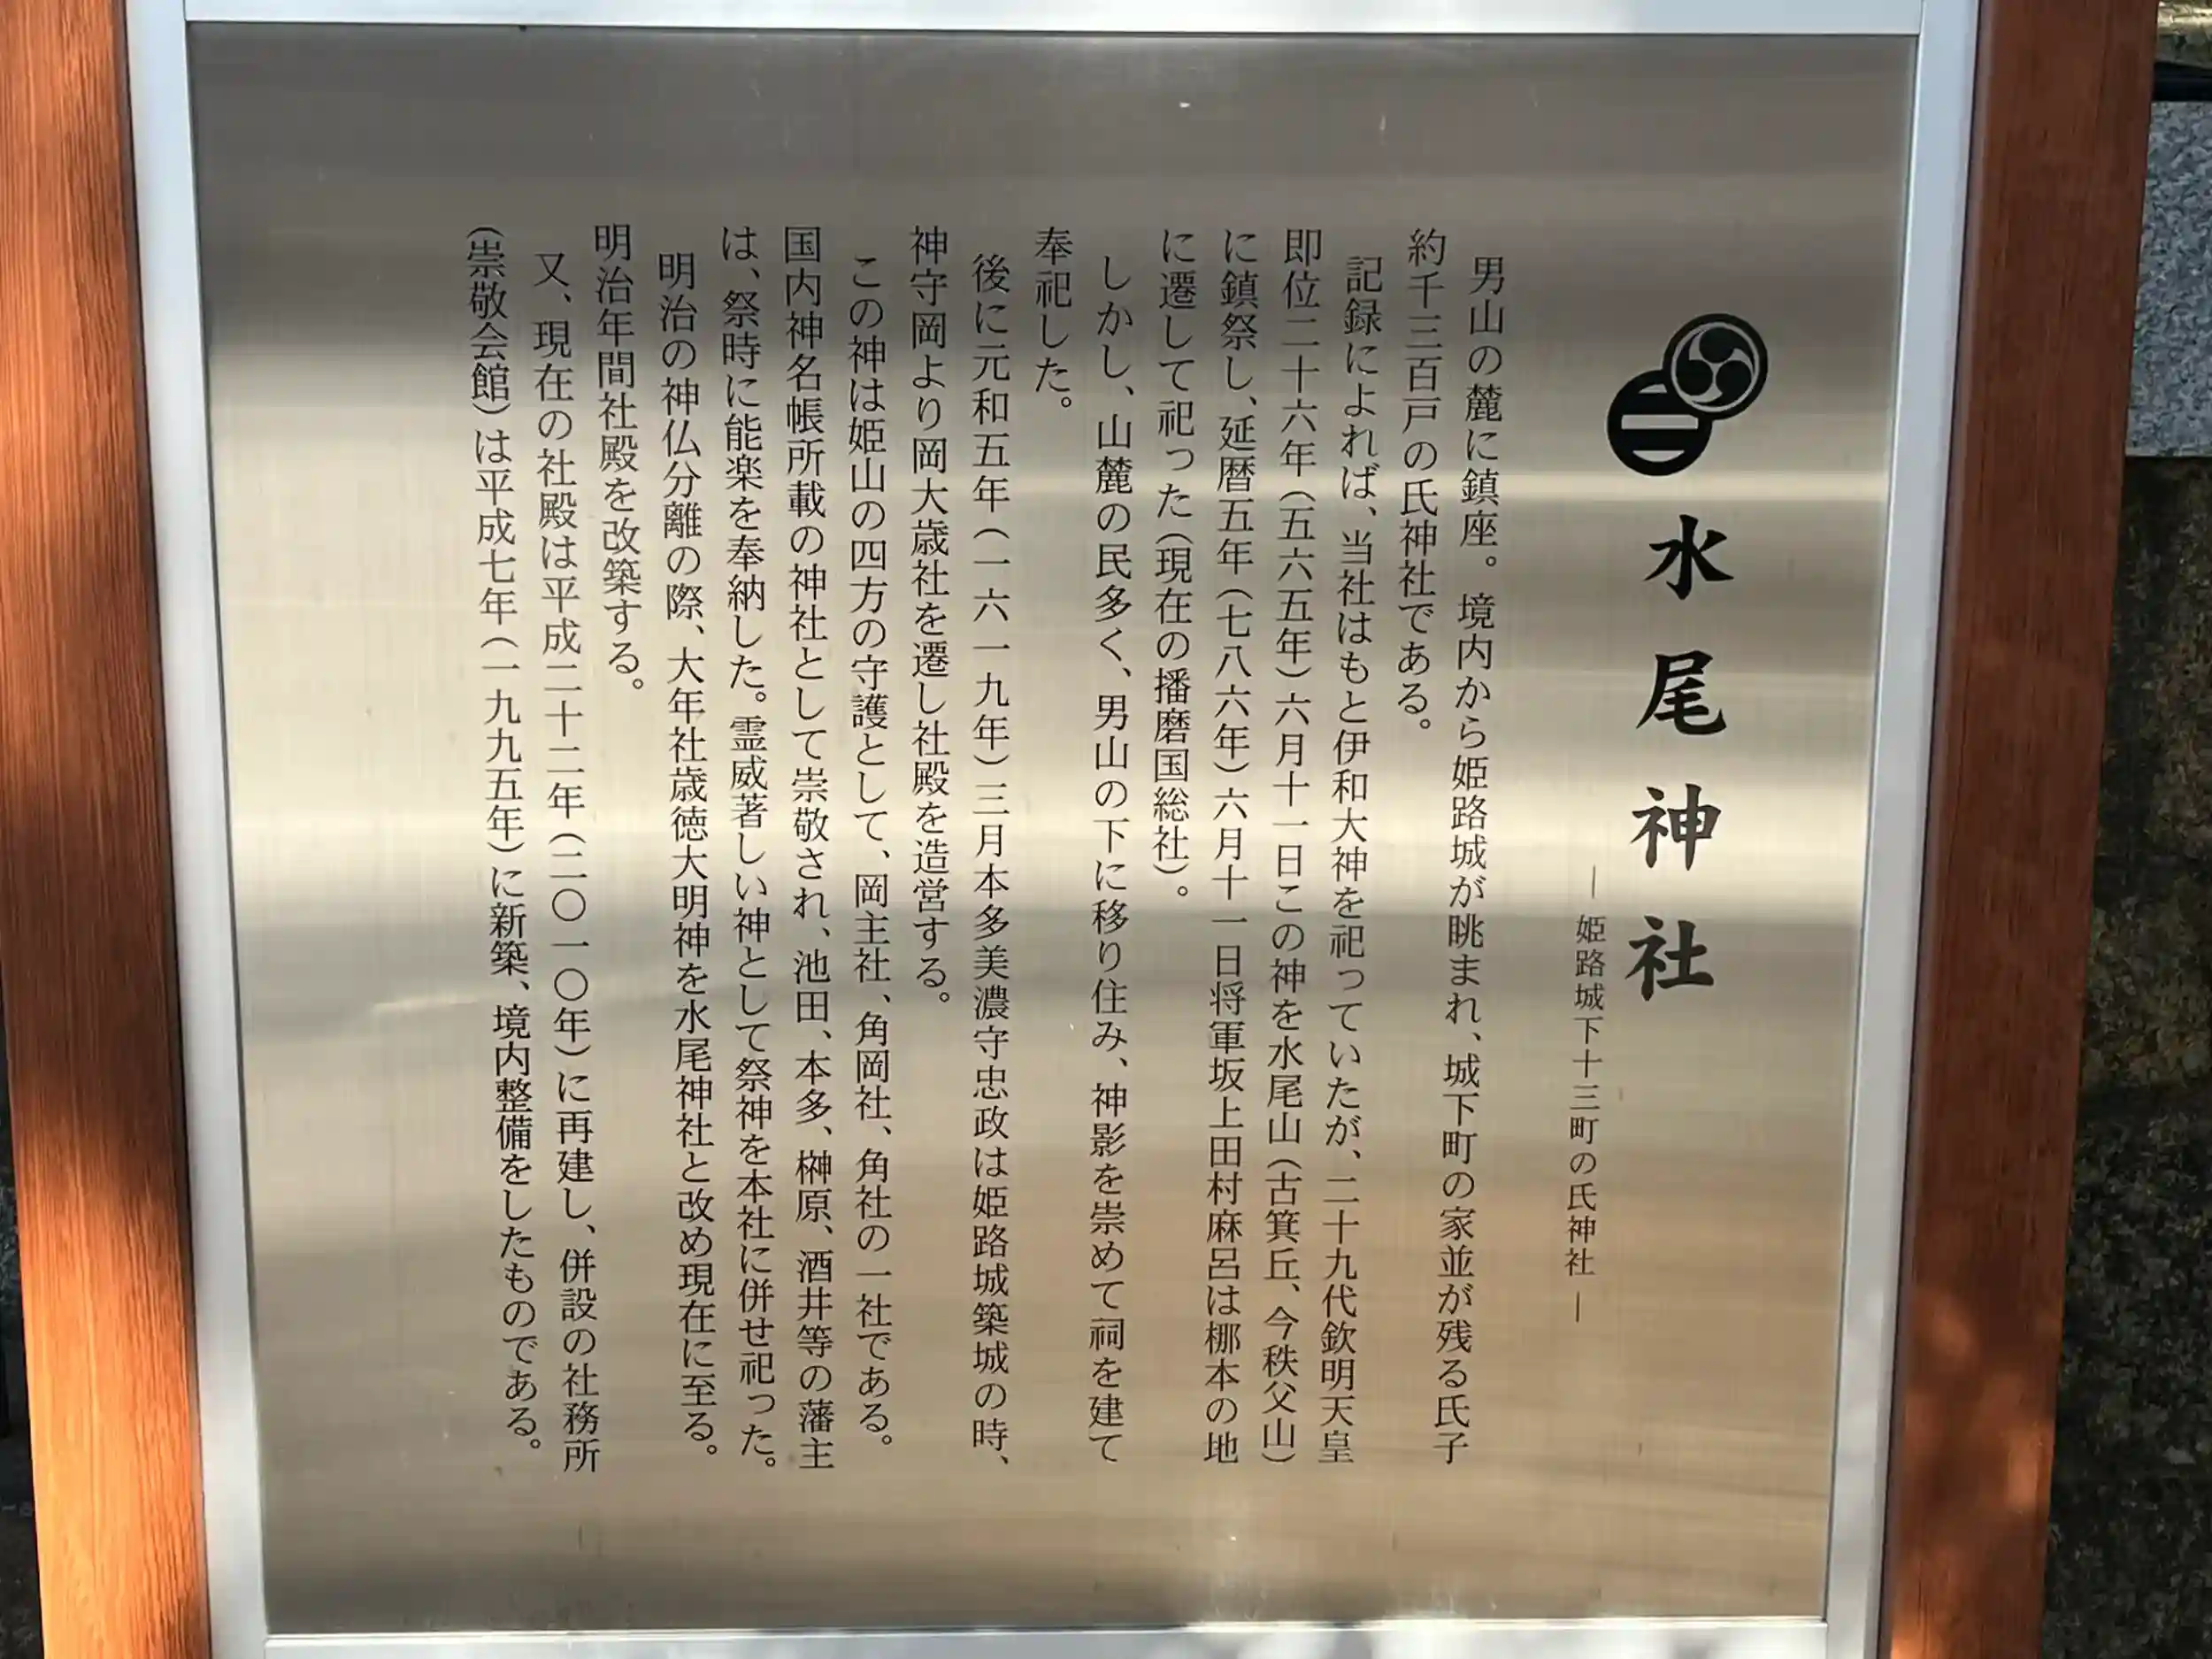 水尾神社
― 姫路城下十三町の氏神社 ―
男山の麓に鎮座。境内から姫路城が眺まれ、城下町の家並が残る氏子
約千三百戸の氏神社である。
記録によれば、当社はもと伊和大神を祀っていたが、二十九代欽明天皇
即位二十六年（五六五年）六月十一日この神を水尾山（古箕丘、今秩父山）
に鎮祭し、延暦五年（七八六年）六月十一日将軍坂上田村麻呂は梛本の地
に遷して祀った（現在の播磨国総社）。
しかし、山麓の民多く、男山の下に移り住み、神影を崇めて祠を建て
奉祀した。
後に元和五年（一六一九年）三月本多美濃守忠政は姫路城築城の時、
神守岡より岡大歳社を遷し社殿を造営する。
この神は姫山の四方の守護として、岡主社、角岡社、角社の一社である。
国内神名帳所載の神社として崇敬され、池田、本多、榊原、酒井等の藩主
は、祭時に能楽を奉納した。霊威著しい神として祭神を本社に併せ祀った。
明治の神仏分離の際、大年社歳徳大明神を水尾神社と改め現在に至る。
明治年間社殿を改築する。
又、現在の社殿は平成二十二年（二〇一〇年）に再建し、併設の社務所
（崇敬会館）は平成七年（一九九五年）に新築、境内整備をしたものである。